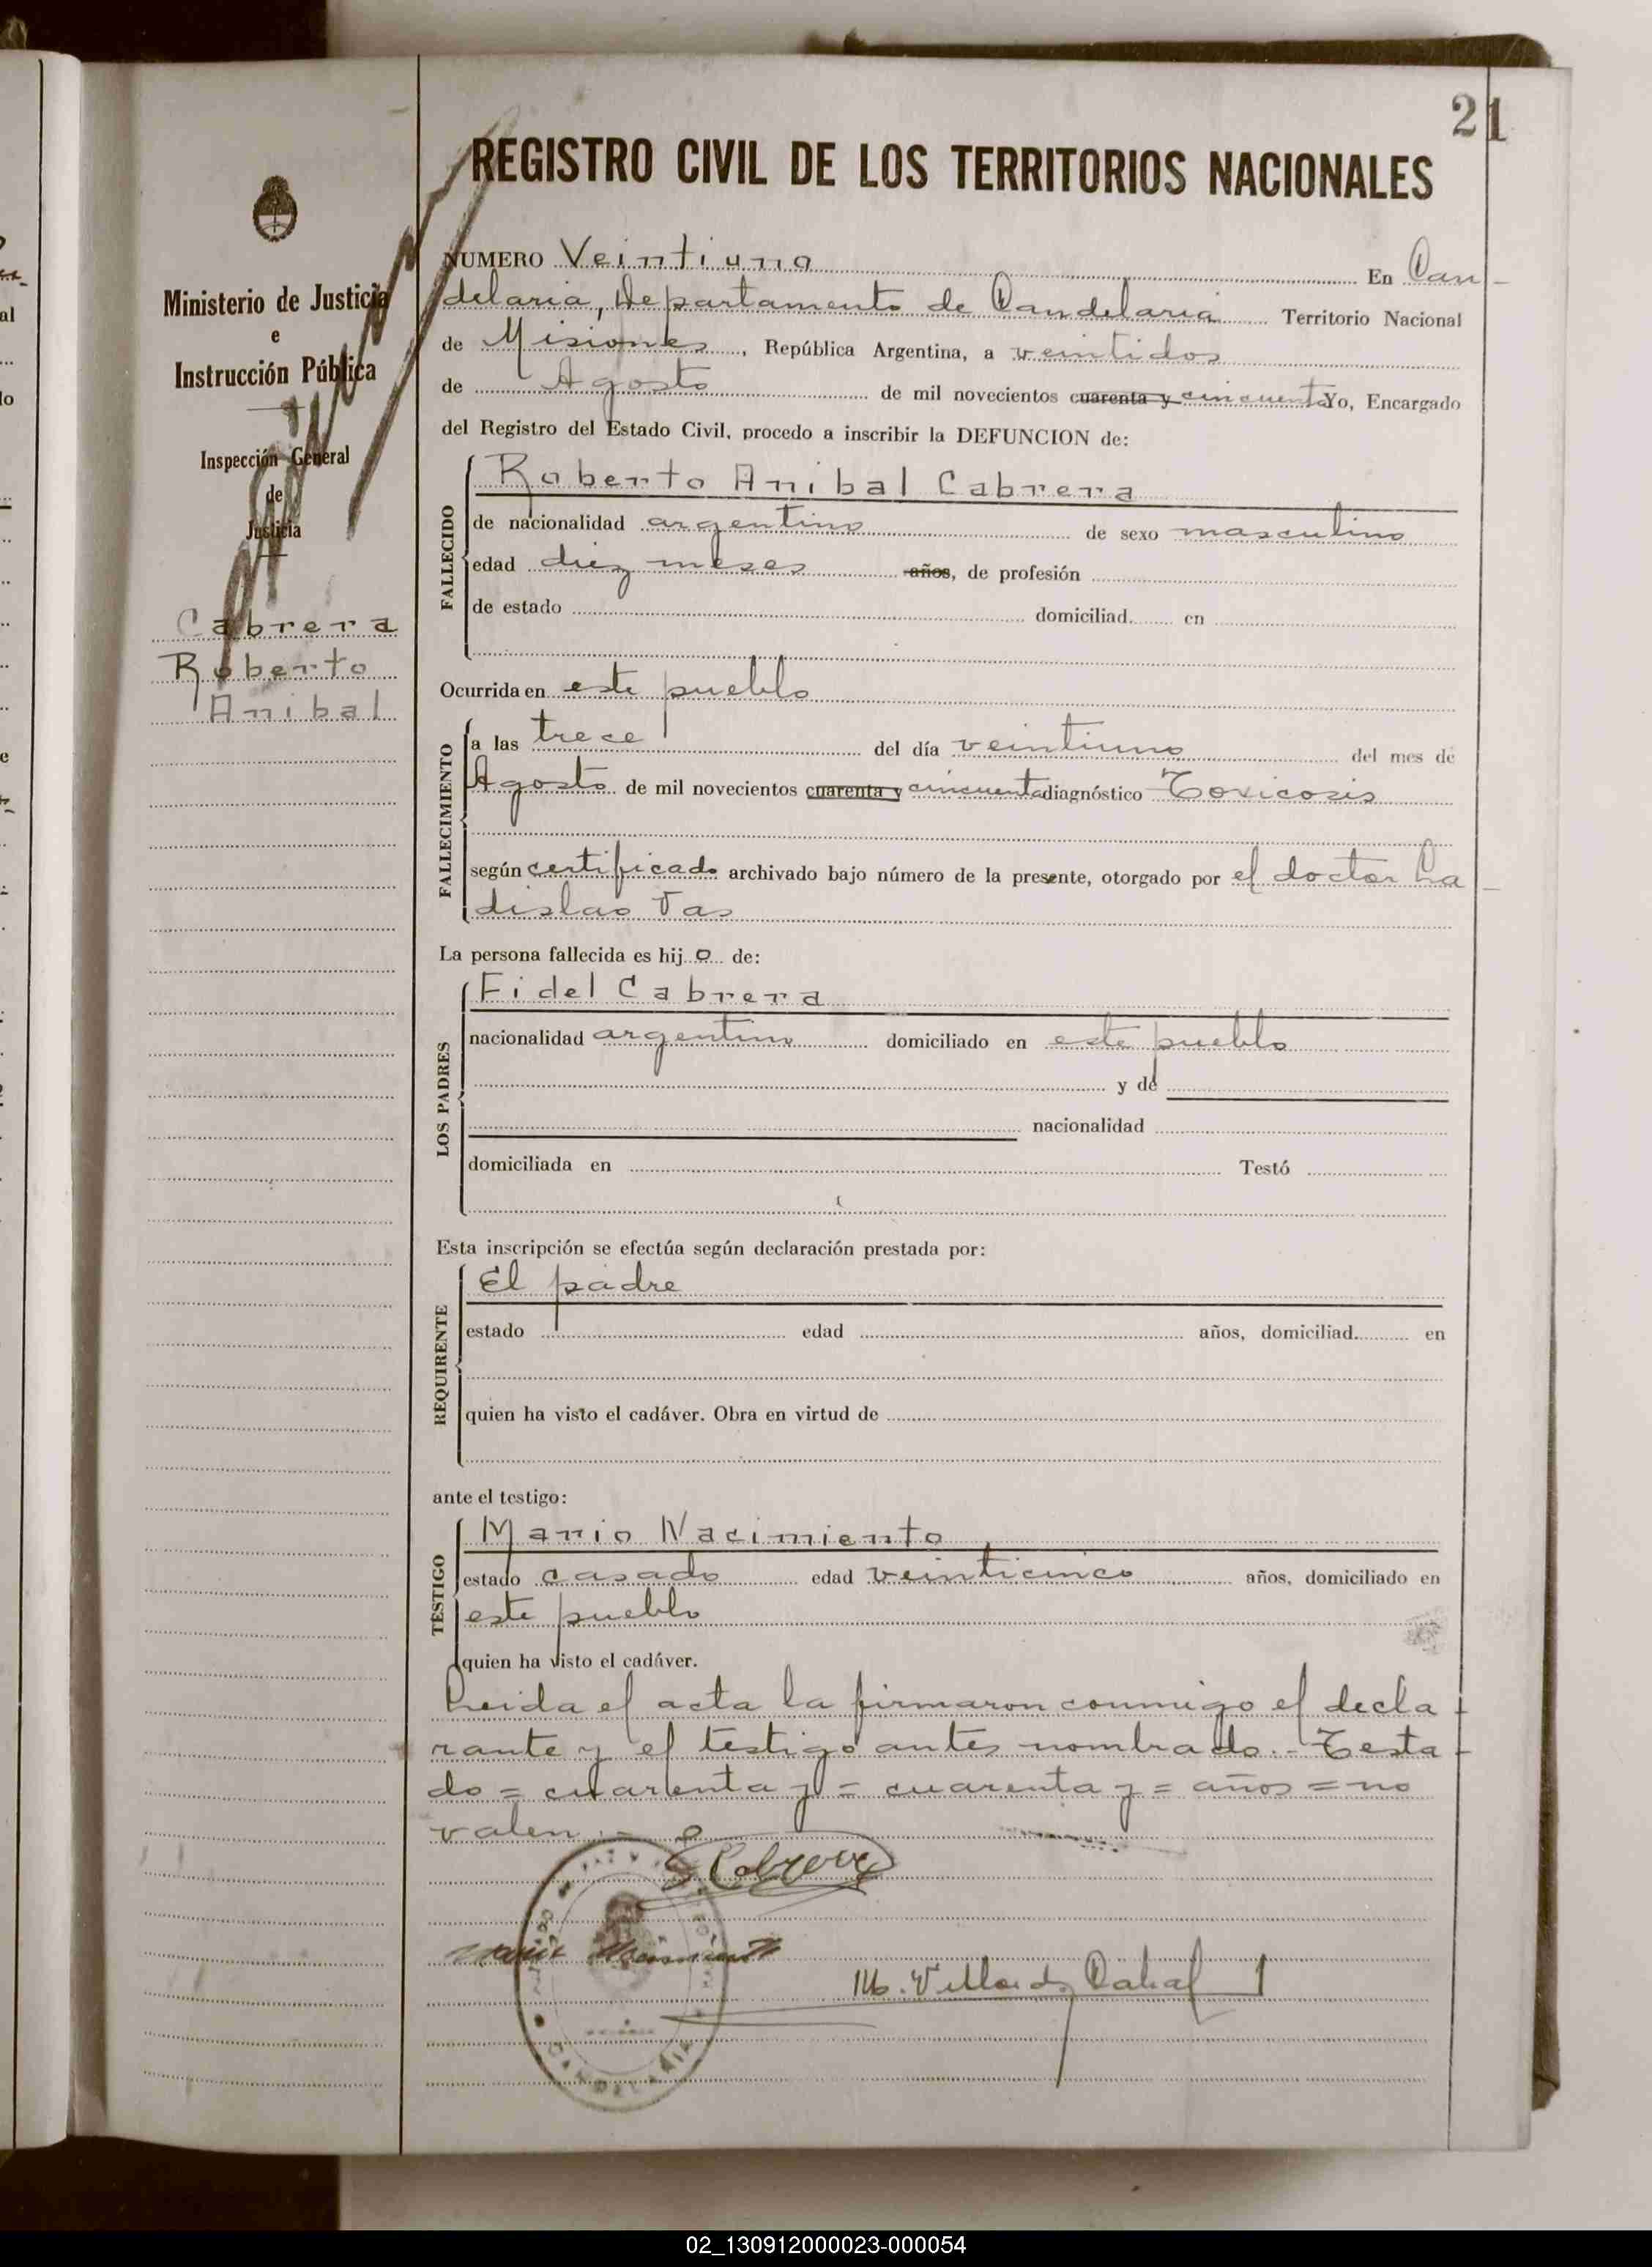 21
REGISTRO CIVIL DE LOS TERRITORIOS NACIONALES
Ministerio de Justicia
e
Instrucción Pública
Inspección General
de
Justicia
Cabrera
Roberto
Anibal
NUMERO Veintiuno En Can-
delaria, Departamento de Candelaria Territorio Nacional
de Misiones, República Argentina, a veintidos
de Agosto de mil novecientos cuarenta y cincuenta Yo, Encargado
del Registro del Estado Civil, procedo a inscribir la DEFUNCION de:
FALLECIDO
Roberto Anibal Cabrera
de nacionalidad argentino de sexo masculino
edad diez meses años, de profesión
de estado domiciliad en
Ocurrida en este pueblo
FALLECIMIENTO
a las trece del día veintiuno del mes de
Agosto de mil novecientos cuarenta y cincuenta diagnóstico Toxicosis
según certificado archivado bajo número de la presente, otorgado por el doctor La-
dislao Vas
La persona fallecida es hijo de:
LOS PADRES
Fidel Cabrera
nacionalidad argentino domiciliado en este pueblo
y de
nacionalidad
domiciliada en Testó
Esta inscripción se efectúa según declaración prestada por:
REQUIRENTE
El padre
estado edad años, domiciliad en
quien ha visto el cadáver. Obra en virtud de
ante el testigo:
TESTIGO
Mario Nacimiento
estado casado edad veinticinco años, domiciliado en
este pueblo
quien ha visto el cadáver.
Leida el acta la firmaron conmigo el decla-
rante y el testigo antes nombrado.- Testa-
do = cuarenta y = cuarenta y = años = no
valen.-
Cabrera
Mario Nacimiento
CANDELARIA
02_130912000023-000054